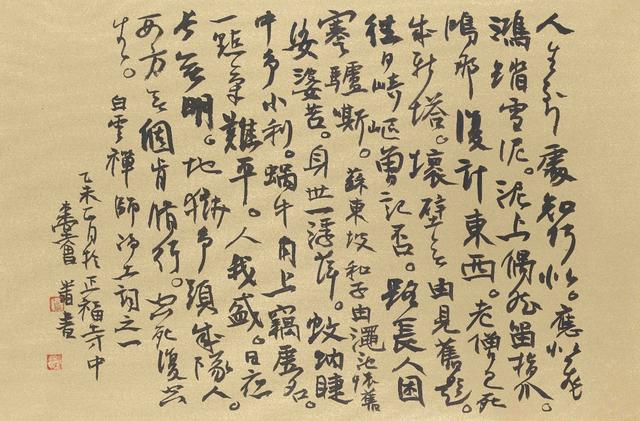 人生到處知何似。應似飛
鴻踏雪泥。泥上偶然留指爪。
鴻那復計東西。老僧已死
成新塔。壞壁無由見舊題。
往日崎嶇曾記否。路長人困
蹇驢嘶。蘇東坡和子由澠池懷舊
娑婆苦。身世一浮萍。蚊蚋睫
中爭小利。蝸牛角上竊虛名。
一點氣難平。人我盛。日夜
長無明。地獄爭頭成隊入。
西方無個肯脩行。空死復空
生。白雲禪師淨土詞之一
乙未正月於正福寺中
書